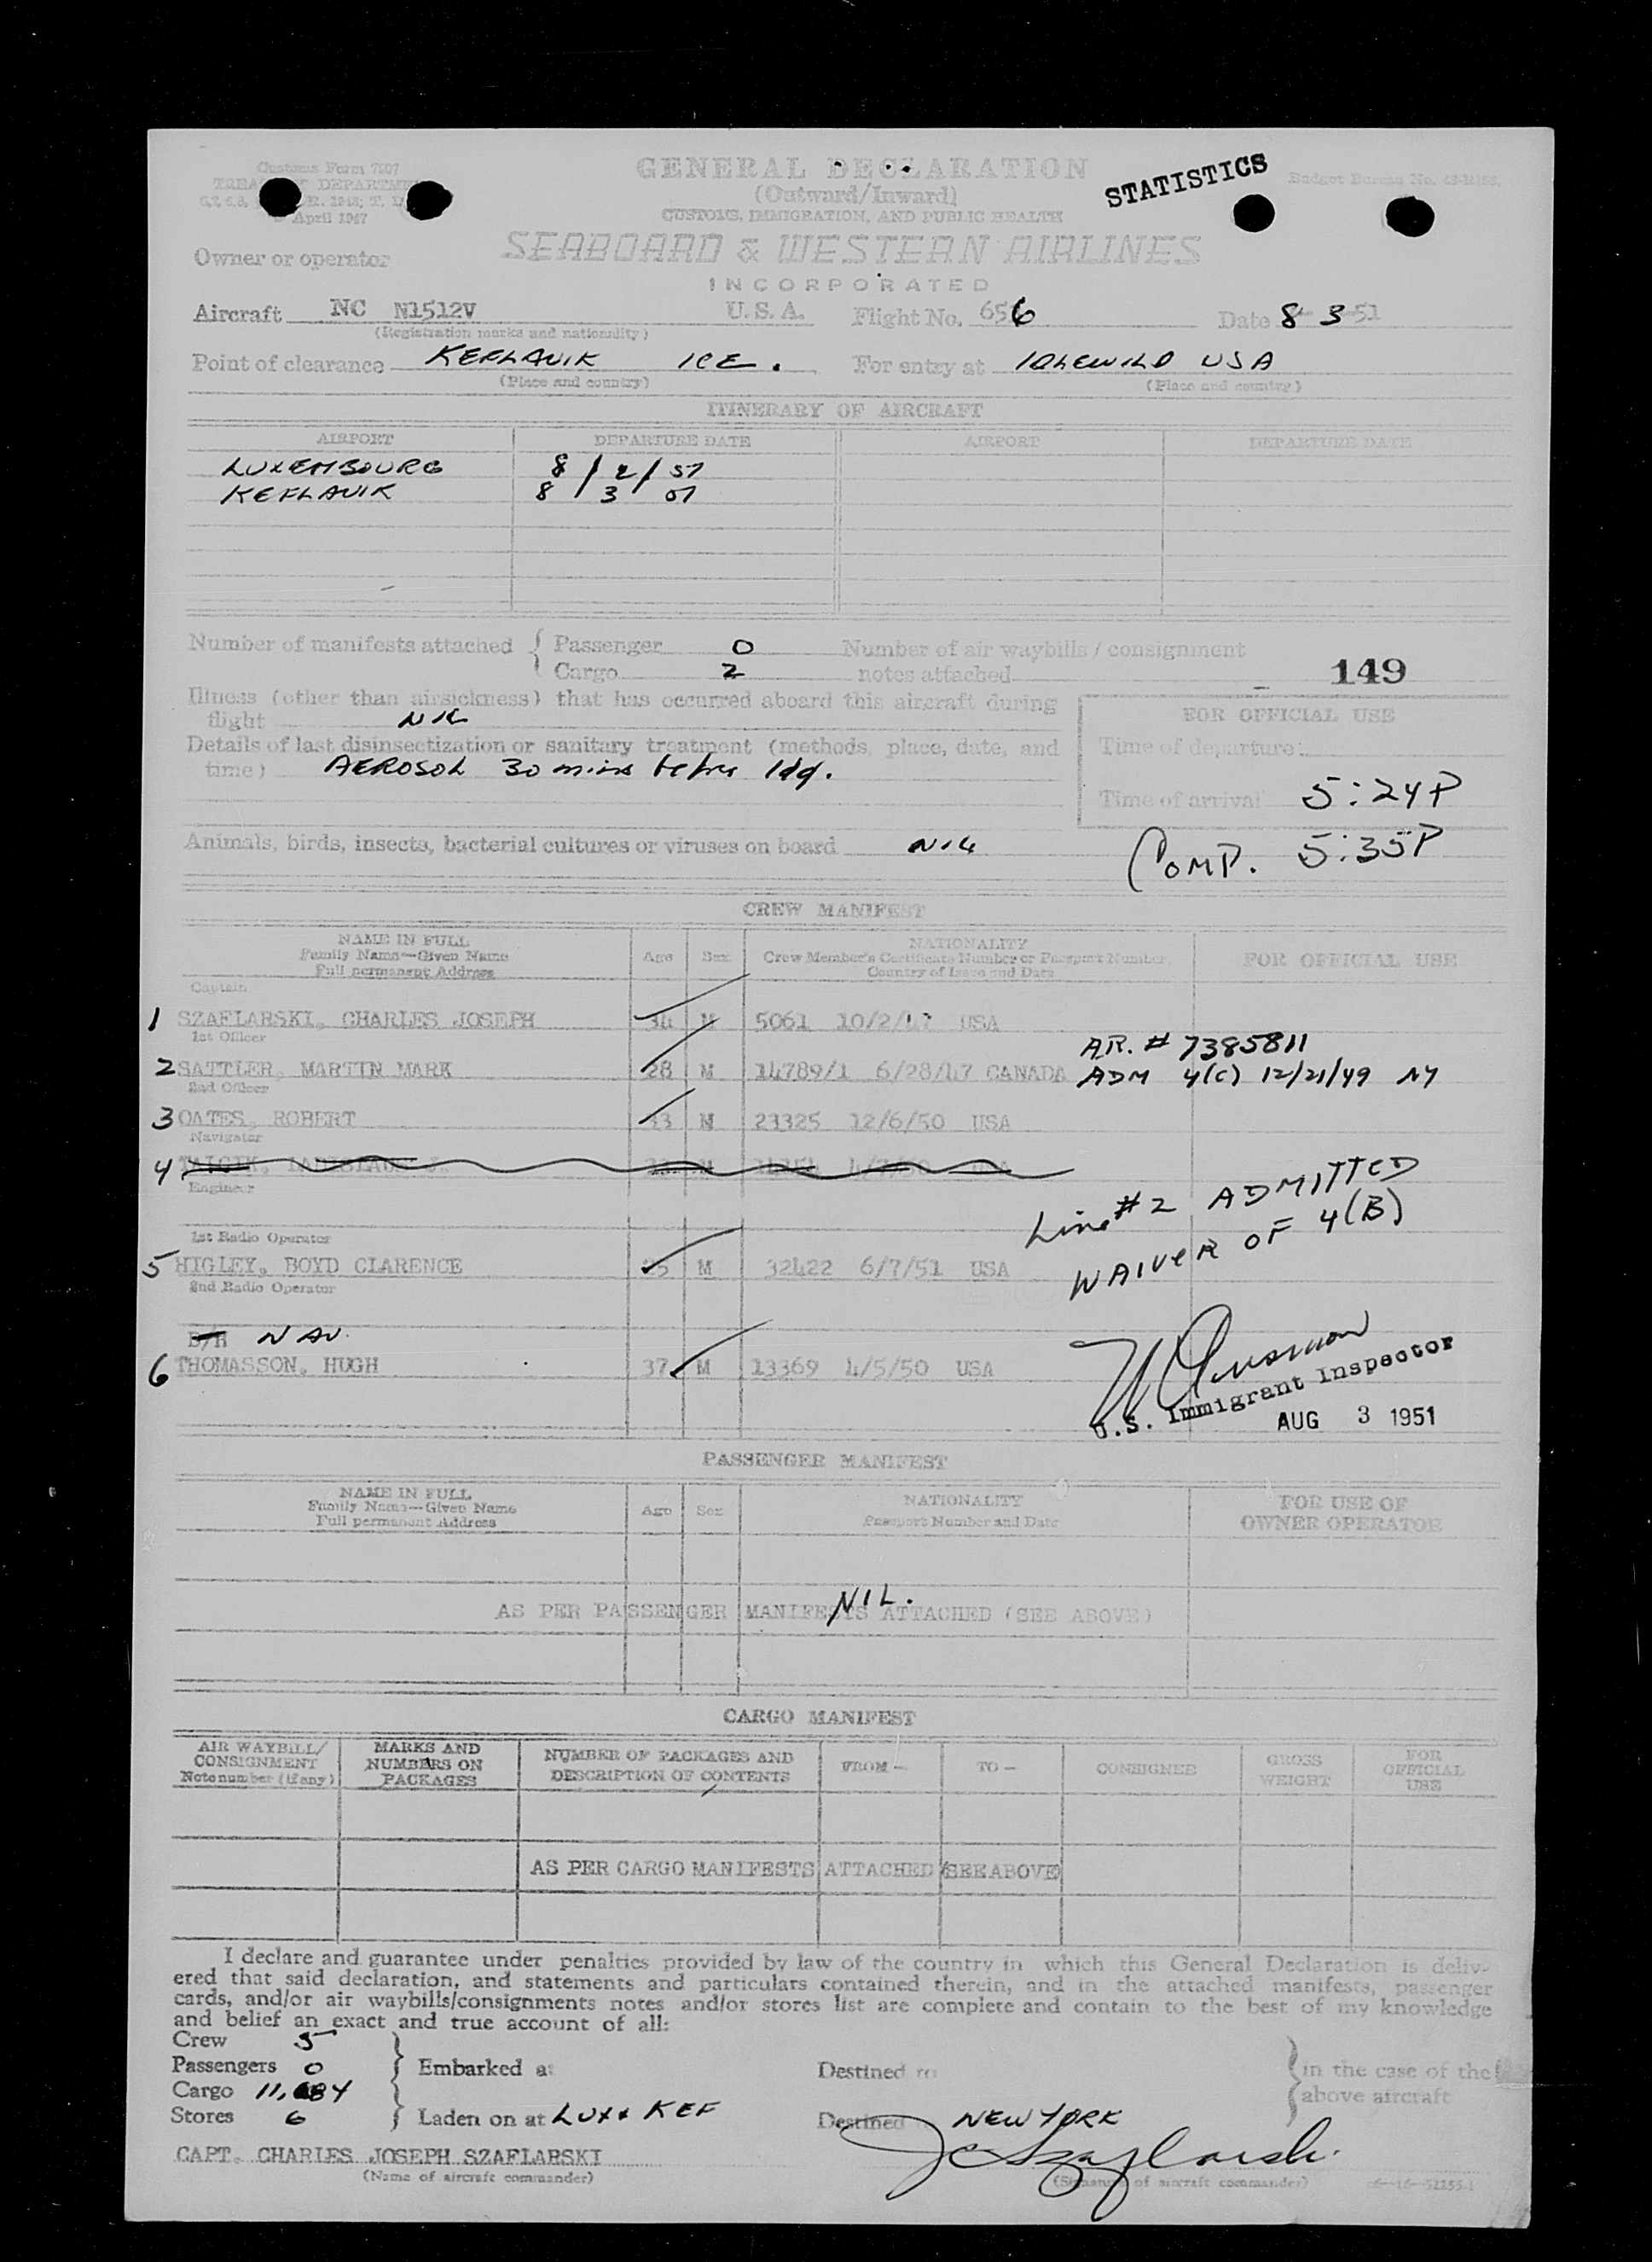 Customs Form 7507
GENERAL DECLARATION
STATISTICS
Budget Bureau No.
TREASURY DEPARTMENT
(Outward/Inward)
April 1947
CUSTOMS, IMMIGRATION, AND PUBLIC HEALTH
Owner or operator
SEABOARD & WESTERN AIRLINES
INCORPORATED
Aircraft NC N1512V U.S.A. Flight No. 656 Date 8 3 51
(Registration marks and nationality)
Point of clearance KEFLAVIK ICE. For entry at IDLEWILD USA
(Place and country) (Place and country)
ITINERARY OF AIRCRAFT
AIRPORT DEPARTURE DATE AIRPORT DEPARTURE DATE
LUXEMBOURG 8/2/51
KEFLAVIK 8/3 51
Number of manifests attached { Passenger 0 Number of air waybills / consignment
Cargo 2 notes attached
149
Illness (other than airsickness) that has occurred aboard this aircraft during
flight NIL
FOR OFFICIAL USE
Details of last disinsectization or sanitary treatment (methods, place, date, and
time) AEROSOL 30 mins before ldg.
Time of departure:
Time of arrival 5:24P
Animals, birds, insects, bacterial cultures or viruses on board NIL
COMP. 5:35P
CREW MANIFEST
NAME IN FULL
Family Name—Given Name
Full permanent Address
Age Sex
NATIONALITY
Crew Member's Certificate Number or Passport Number
Country of Issue and Date
FOR OFFICIAL USE
Captain
1 SZAFLARSKI, CHARLES JOSEPH 34 M 5061 10/2/47 USA
1st Officer
AR. # 7385811
2 SATTLER, MARTIN MARK 28 M 14789/1 6/28/47 CANADA ADM 4(C) 12/21/49 NY
2nd Officer
3 OATES, ROBERT 33 M 23325 12/6/50 USA
Navigator
4
Engineer
Line #2 ADMITTED
WAIVER OF 4(B)
1st Radio Operator
5 HIGLEY, BOYD CLARENCE 25 M 32422 6/7/51 USA
2nd Radio Operator
NAV.
6 THOMASSON, HUGH 37 M 13369 4/5/50 USA
U.S. Immigrant Inspector
AUG 3 1951
PASSENGER MANIFEST
NAME IN FULL
Family Name—Given Name
Full permanent Address
Age Sex
NATIONALITY
Passport Number and Date
FOR USE OF
OWNER OPERATOR
NIL.
AS PER PASSENGER MANIFESTS ATTACHED (SEE ABOVE)
CARGO MANIFEST
AIR WAYBILL/
CONSIGNMENT
Note number (if any)
MARKS AND
NUMBERS ON
PACKAGES
NUMBER OF PACKAGES AND
DESCRIPTION OF CONTENTS
FROM — TO — CONSIGNEE
GROSS
WEIGHT
FOR
OFFICIAL
USE
AS PER CARGO MANIFESTS ATTACHED (SEE ABOVE)
I declare and guarantee under penalties provided by law of the country in which this General Declaration is deliv-
ered that said declaration, and statements and particulars contained therein, and in the attached manifests, passenger
cards, and/or air waybills/consignments notes and/or stores list are complete and contain to the best of my knowledge
and belief an exact and true account of all:
Crew 5
Passengers 0 Embarked at Destined to in the case of the
Cargo 11,684 above aircraft
Stores 6 Laden on at LUX & KEF Destined NEW YORK
CAPT. CHARLES JOSEPH SZAFLARSKI JC Szaflarski
(Name of aircraft commander) (Signature of aircraft commander)